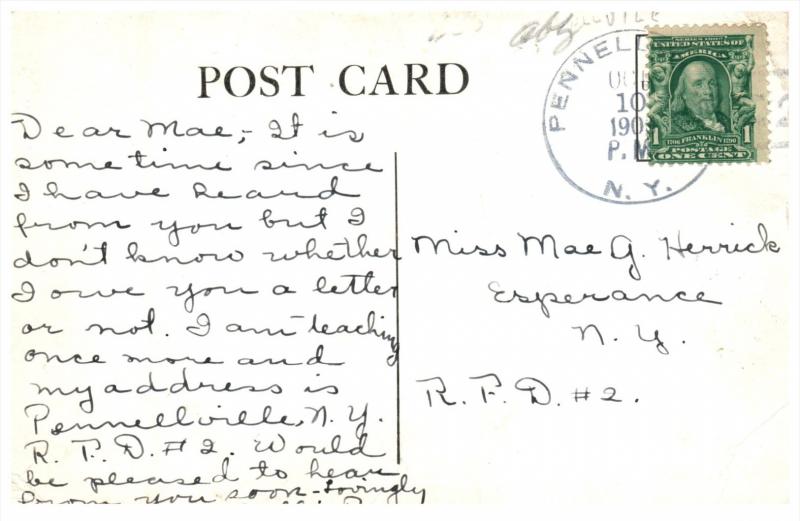 POST CARD
Dear Mae,- It is
some time since
I have heard
from you but I
don't know whether
I owe you a letter
or not. I am teaching
once more and
my address is
Pennellville, N.Y.
R. F. D. #2. Would
be pleased to hear
from you soon - Lovingly
PENNELL
VILLE
OCT
10
190
P. M
N. Y.
SERIES 1902
UNITED STATES OF
AMERICA
1706 FRANKLIN 1790
1
POSTAGE
ONE CENT
Miss Mae G. Herrick
Esperance
N. Y.
R. F. D. #2.